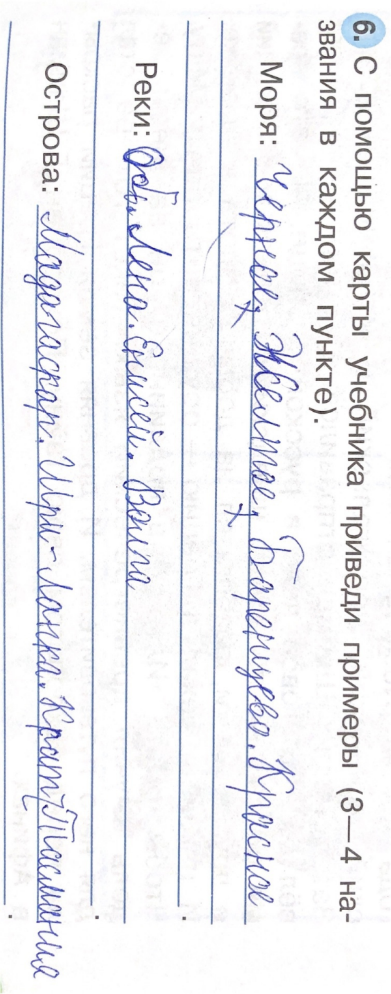 6. С помощью карты учебника приведи примеры (3—4 на-
звания в каждом пункте).
Моря: Черное, Желтое, Баренцево, Красное
.
Реки: Обь, Лена, Енисей, Волга
.
Острова: Мадагаскар, Шри-Ланка, Крит, Тасмания
.